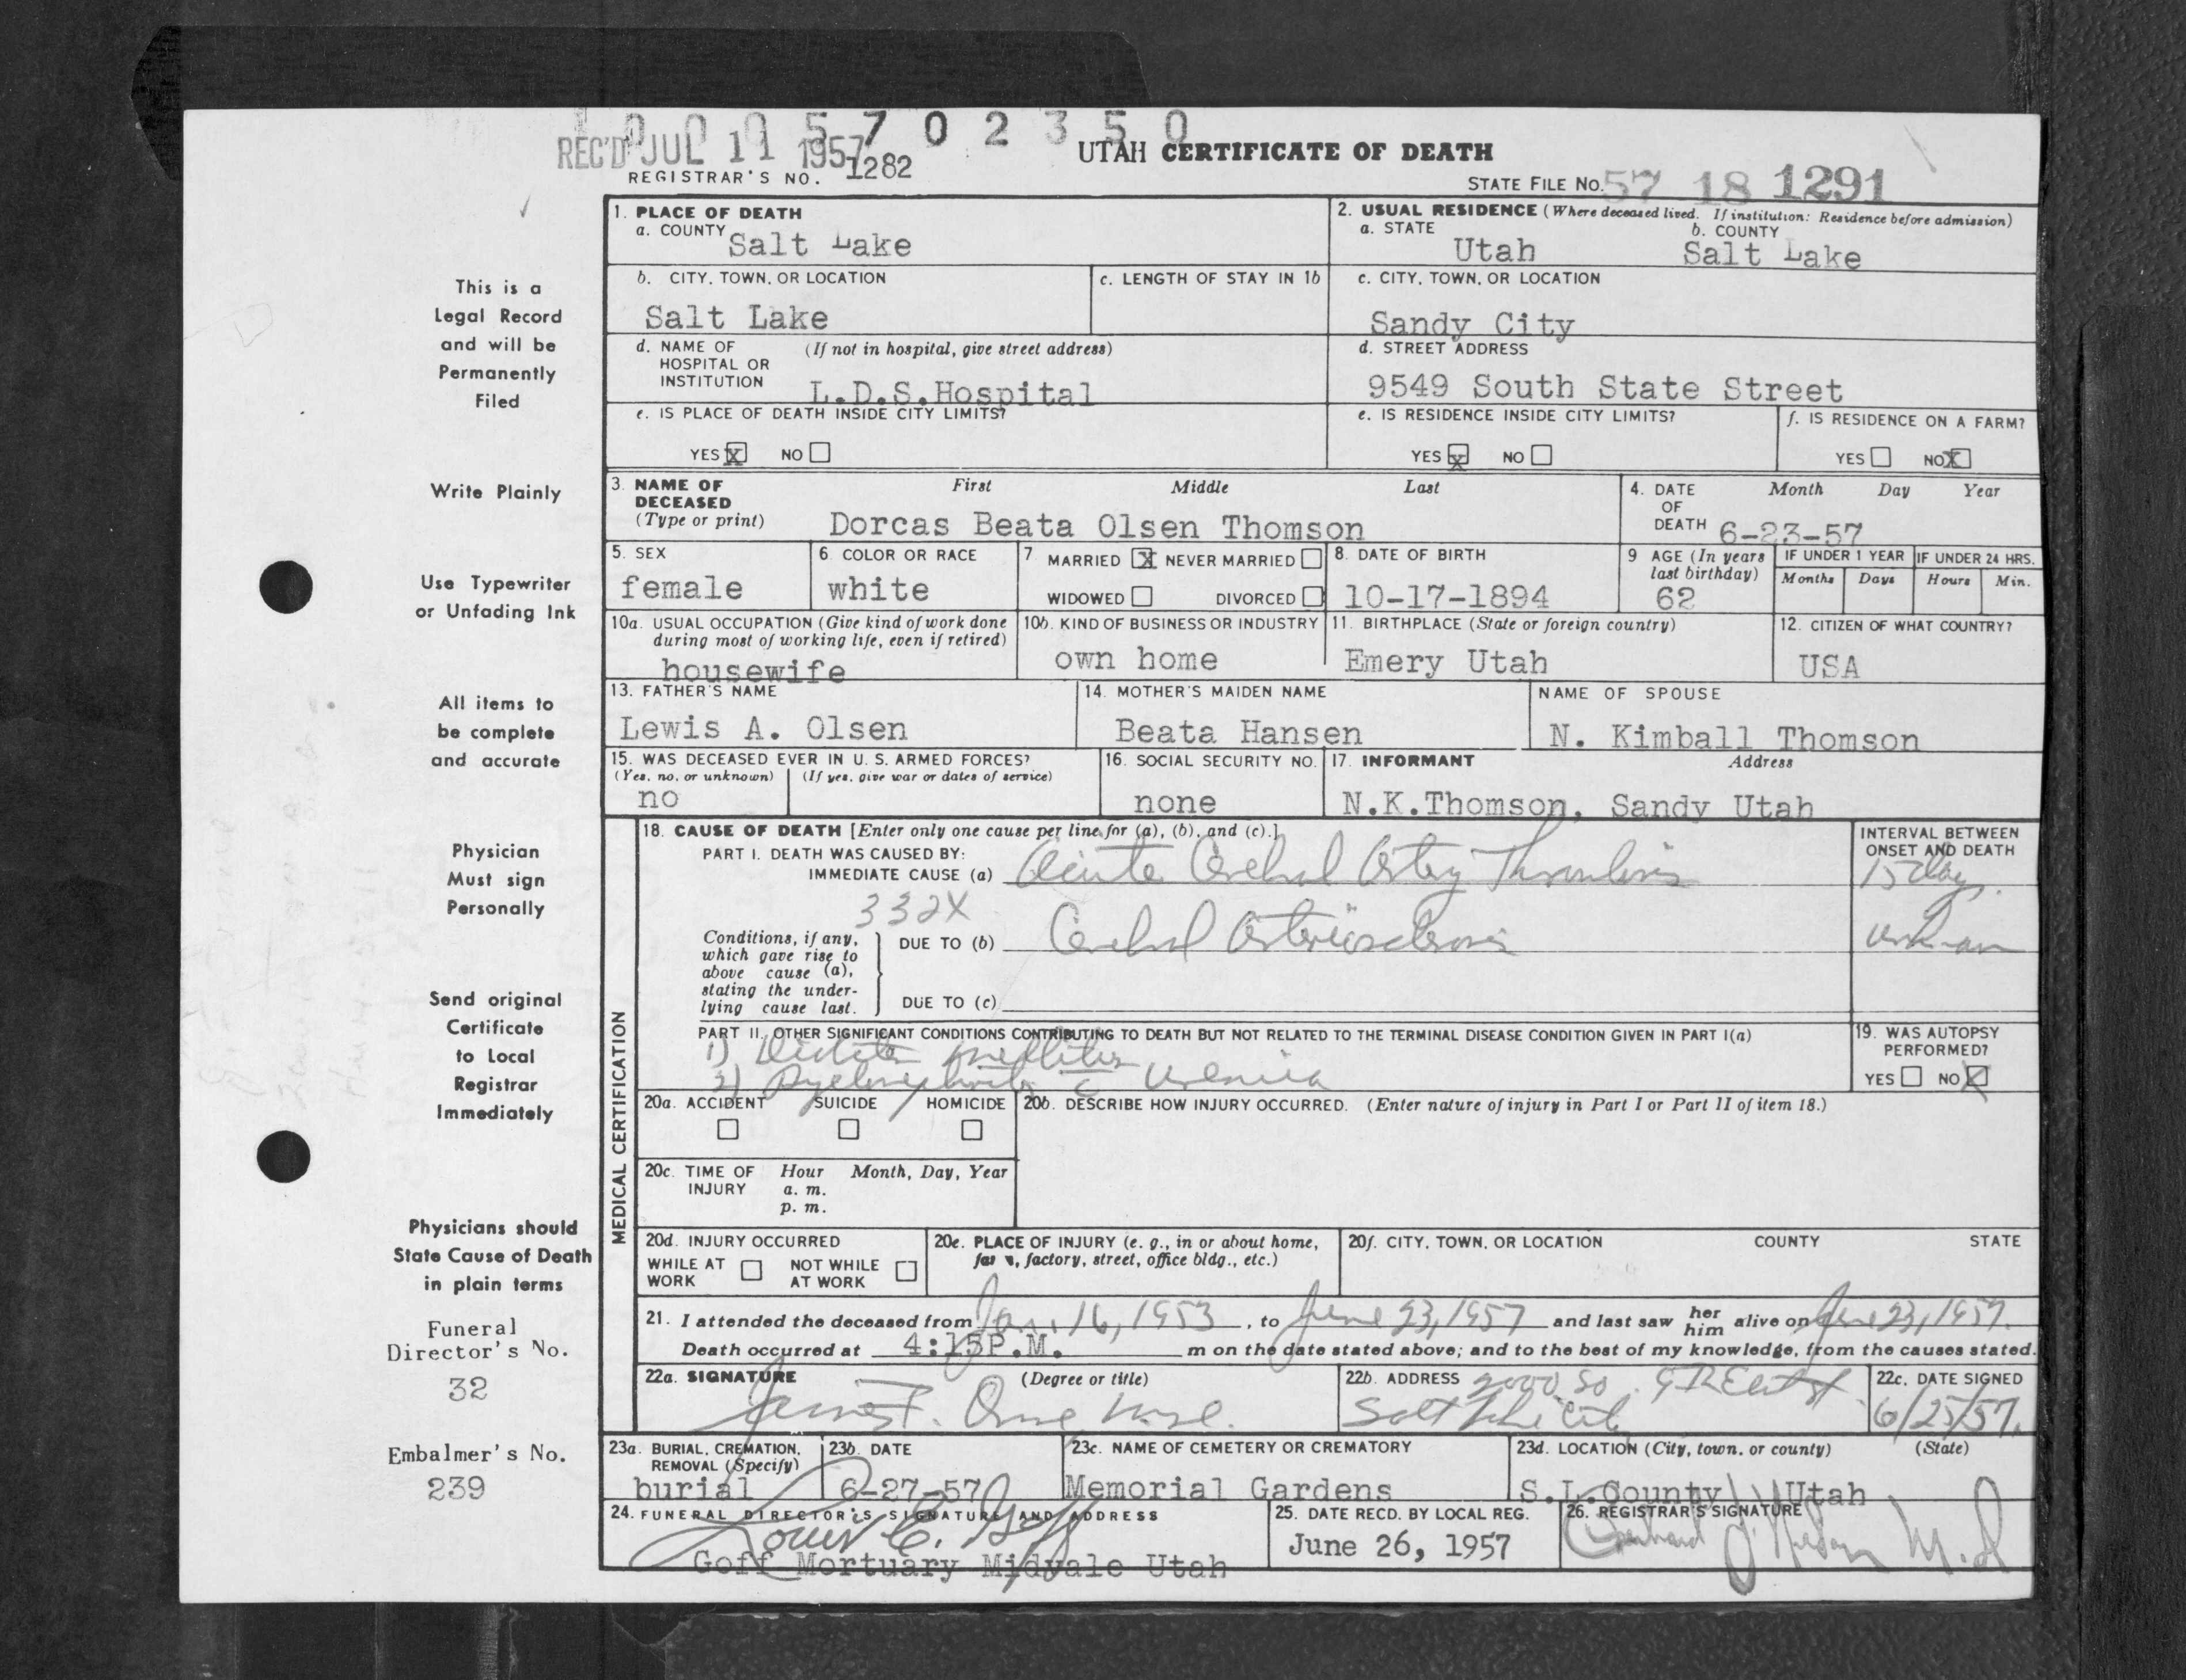 1 0 0 0 5 7 0 2 3 5 0
REC'D JUL 11 1957
UTAH CERTIFICATE OF DEATH
REGISTRAR'S NO. 1282
STATE FILE NO. 57 18 1291
1. PLACE OF DEATH
a. COUNTY Salt Lake
2. USUAL RESIDENCE (Where deceased lived. If institution: Residence before admission)
a. STATE Utah b. COUNTY Salt Lake
b. CITY, TOWN, OR LOCATION Salt Lake
c. LENGTH OF STAY IN 1b
c. CITY, TOWN, OR LOCATION Sandy City
d. NAME OF HOSPITAL OR INSTITUTION (If not in hospital, give street address) L.D.S.Hospital
d. STREET ADDRESS 9549 South State Street
e. IS PLACE OF DEATH INSIDE CITY LIMITS?
YES X NO
e. IS RESIDENCE INSIDE CITY LIMITS?
YES X NO
f. IS RESIDENCE ON A FARM?
YES NO X
3. NAME OF DECEASED (Type or print) First Middle Last
Dorcas Beata Olsen Thomson
4. DATE OF DEATH Month Day Year
6-23-57
5. SEX female
6. COLOR OR RACE white
7 MARRIED X NEVER MARRIED
WIDOWED DIVORCED
8. DATE OF BIRTH 10-17-1894
9 AGE (In years last birthday) 62
IF UNDER 1 YEAR Months Days
IF UNDER 24 HRS. Hours Min.
10a. USUAL OCCUPATION (Give kind of work done during most of working life, even if retired) housewife
10b. KIND OF BUSINESS OR INDUSTRY own home
11. BIRTHPLACE (State or foreign country) Emery Utah
12. CITIZEN OF WHAT COUNTRY? USA
13. FATHER'S NAME Lewis A. Olsen
14. MOTHER'S MAIDEN NAME Beata Hansen
NAME OF SPOUSE N. Kimball Thomson
15. WAS DECEASED EVER IN U. S. ARMED FORCES?
(Yes, no, or unknown) (If yes, give war or dates of service)
no
16. SOCIAL SECURITY NO. none
17. INFORMANT Address
N.K.Thomson, Sandy Utah
MEDICAL CERTIFICATION
18. CAUSE OF DEATH [Enter only one cause per line for (a), (b), and (c).]
PART I. DEATH WAS CAUSED BY:
IMMEDIATE CAUSE (a) Acute Cerebral Artery Thrombosis
INTERVAL BETWEEN ONSET AND DEATH
15 days.
332X
Conditions, if any, which gave rise to above cause (a), stating the underlying cause last.
DUE TO (b) Cerebral Arteriosclerosis
unknown
DUE TO (c)
PART II. OTHER SIGNIFICANT CONDITIONS CONTRIBUTING TO DEATH BUT NOT RELATED TO THE TERMINAL DISEASE CONDITION GIVEN IN PART I(a)
1) Diabetes mellitus
2) Pyelonephritis c uremia
19. WAS AUTOPSY PERFORMED?
YES NO X
20a. ACCIDENT SUICIDE HOMICIDE
20b. DESCRIBE HOW INJURY OCCURRED. (Enter nature of injury in Part I or Part II of item 18.)
20c. TIME OF INJURY Hour Month, Day, Year
a. m.
p. m.
20d. INJURY OCCURRED
WHILE AT WORK NOT WHILE AT WORK
20e. PLACE OF INJURY (e. g., in or about home, farm, factory, street, office bldg., etc.)
20f. CITY, TOWN, OR LOCATION COUNTY STATE
21. I attended the deceased from Jan. 16, 1953, to June 23, 1957 and last saw her him alive on June 23, 1957.
Death occurred at 4:15P.M. m on the date stated above; and to the best of my knowledge, from the causes stated.
22a. SIGNATURE (Degree or title)
22b. ADDRESS 2000 So. 9th East
Salt Lake City
22c. DATE SIGNED 6/25/57.
23a. BURIAL, CREMATION, REMOVAL (Specify) burial
23b. DATE 6-27-57
23c. NAME OF CEMETERY OR CREMATORY Memorial Gardens
23d. LOCATION (City, town, or county) (State)
S.L.County Utah
24. FUNERAL DIRECTOR'S SIGNATURE AND ADDRESS
Louis E. Goff
Goff Mortuary Midvale Utah
25. DATE RECD. BY LOCAL REG. June 26, 1957
26. REGISTRAR'S SIGNATURE
M.D
This is a
Legal Record
and will be
Permanently
Filed
Write Plainly
Use Typewriter
or Unfading Ink
All items to
be complete
and accurate
Physician
Must sign
Personally
Send original
Certificate
to Local
Registrar
Immediately
Physicians should
State Cause of Death
in plain terms
Funeral
Director's No.
32
Embalmer's No.
239